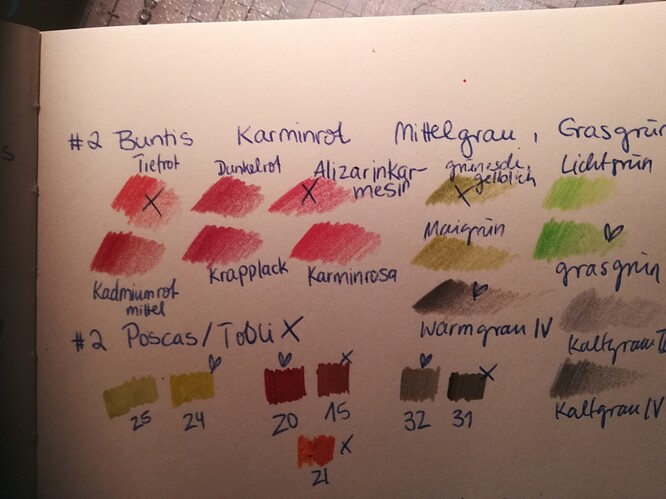 #2 Buntis Karminrot Mittelgrau, Grasgrün
Tiefrot Dunkelrot Alizarinkar-
mesin
gelblich
Lichtgrün
Maigrün
Kadmiumrot
mittel
Krapplack Karminrosa
grasgrün
#2 Poscas/Tobli X
Warmgrau IV
Kaltgrau
Kaltgrau IV
25 24 20 15 32 31
21